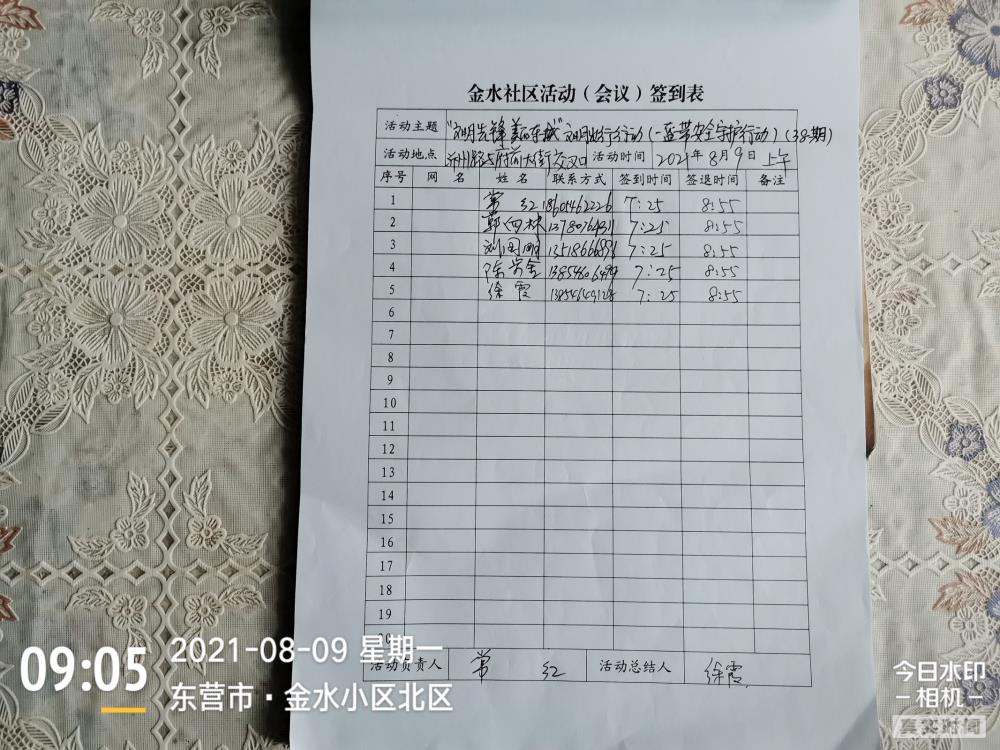 金水社区活动（会议）签到表
活动主题 "文明先锋 美丽东城"文明出行行动（一盔一带安全守护行动）（38期）
活动地点 府前大街交叉口 活动时间 2021年8月9日上午
序号 网 名 姓 名 联系方式 签到时间 签退时间 备注
1 常 红 18601462226 7:25 8:55
2 7:25 8:55
3 7:25 8:55
4 7:25 8:55
5 徐霞 13854649128 7:25 8:55
6
7
8
9
10
11
12
13
14
15
16
17
18
19
20
活动负责人 常 红 活动总结人 徐霞
09:05
2021-08-09 星期一
东营市·金水小区北区
今日水印
相机
真实时间